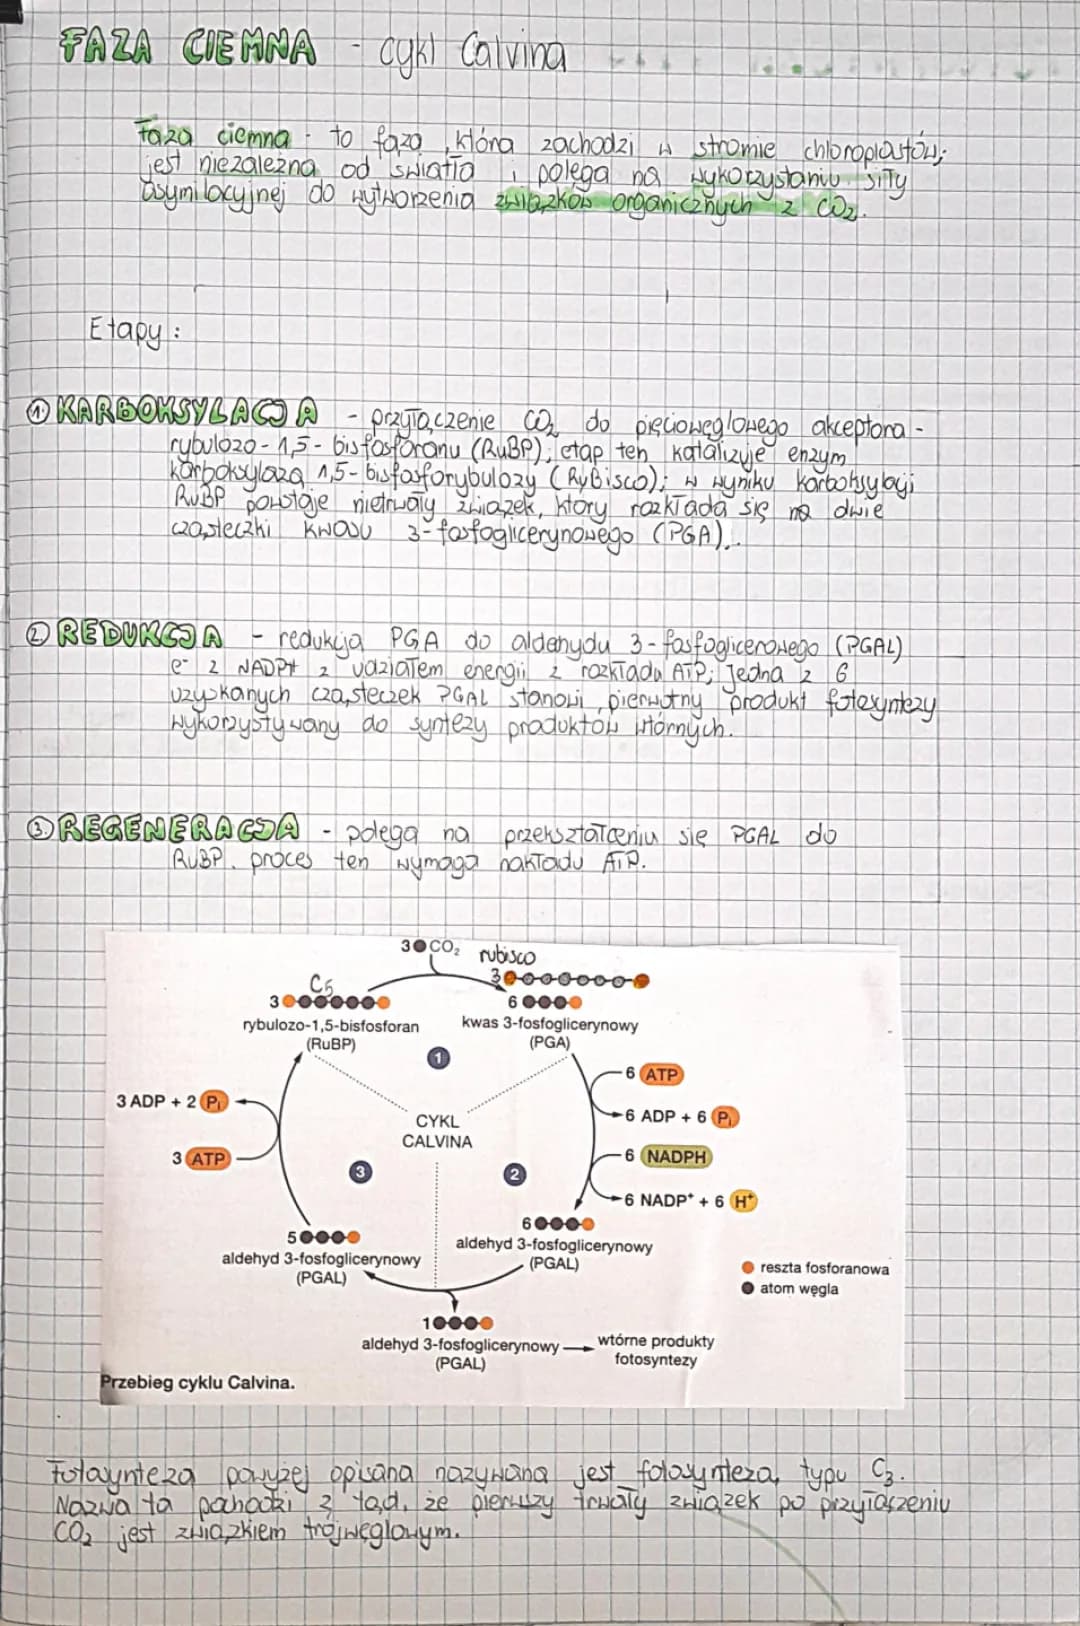 FAZA CIEMNA - cykl Calvina
Faza ciemna - to faza, która zachodzi w stromie chloroplastów;
jest niezależna od światła i polega na wykorzystaniu siły
asymilacyjnej do wytworzenia związków organicznych z CO₂.
Etapy:
1. KARBOKSYLACJA - przyłączenie CO₂ do pięciowęglowego akceptora -
rybulozo-1,5-bisfosforanu (RuBP); etap ten katalizuje enzym
karboksylaza 1,5-bisfosforybulozy (RyBisco); w wyniku karboksylacji
RuBP powstaje nietrwały związek, który rozkłada się na dwie
cząsteczki kwasu 3-fosfoglicerynowego (PGA).
2. REDUKCJA - redukcja PGA do aldehydu 3-fosfoglicerowego (PGAL)
e⁻ z NADPH z udziałem energii z rozkładu ATP; Jedna z 6
uzyskanych cząsteczek PGAL stanowi pierwotny produkt fotosyntezy
wykorzystywany do syntezy produktów wtórnych.
3. REGENERACJA - polega na przekształceniu się PGAL do
RuBP. proces ten wymaga nakładu ATP.
3 CO₂ rubisco
3
C5
3
6
rybulozo-1,5-bisfosforan
(RuBP)
kwas 3-fosfoglicerynowy
(PGA)
1
6 ATP
3 ADP + 2 Pi
6 ADP + 6 Pi
CYKL
CALVINA
3 ATP
3
2
6 NADPH
6 NADP⁺ + 6 H⁺
6
aldehyd 3-fosfoglicerynowy
(PGAL)
5
aldehyd 3-fosfoglicerynowy
(PGAL)
reszta fosforanowa
atom węgla
1
aldehyd 3-fosfoglicerynowy
(PGAL)
wtórne produkty
fotosyntezy
Przebieg cyklu Calvina.
Fotosynteza powyżej opisana nazywana jest fotosyntezą typu C₃.
Nazwa ta pochodzi z tąd, że pierwszy trwały związek po przyłączeniu
CO₂ jest związkiem trójwęglowym.